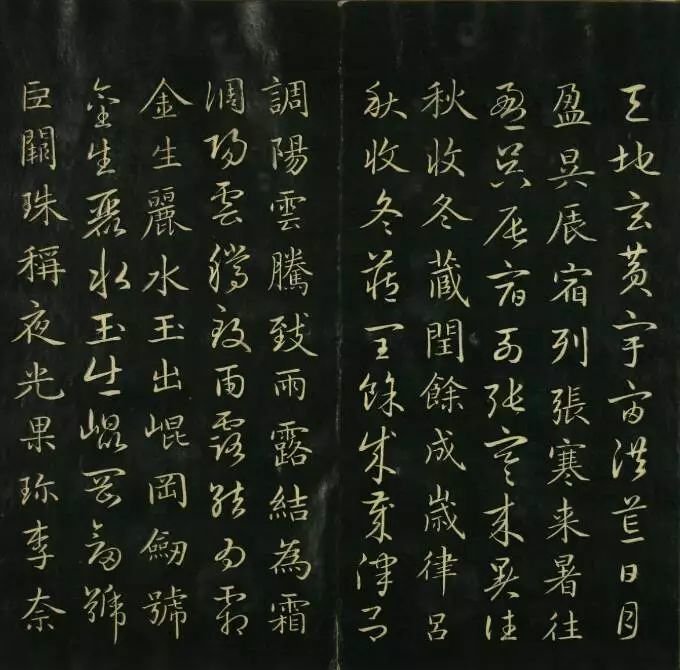 天地玄黃宇宙洪荒日月
盈昃辰宿列張寒来暑往
盈昃辰宿列張寒来暑往
秋收冬藏閏餘成歲律呂
秋收冬藏閏餘成歲律呂
調陽雲騰致雨露結為霜
調陽雲騰致雨露結為霜
金生麗水玉出崐岡劒號
金生麗水玉出崐岡劒號
巨闕珠稱夜光果珎李柰